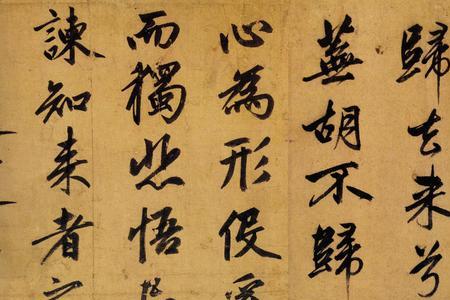 歸去来兮
蕪胡不歸
心為形役
而獨悲悟
諫知来者之